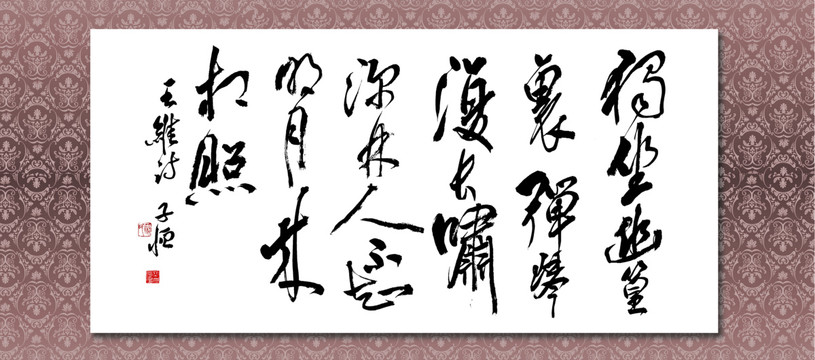 獨坐幽篁
裏彈琴
復長嘯
深林人不知
明月來
相照
王維詩 子恒